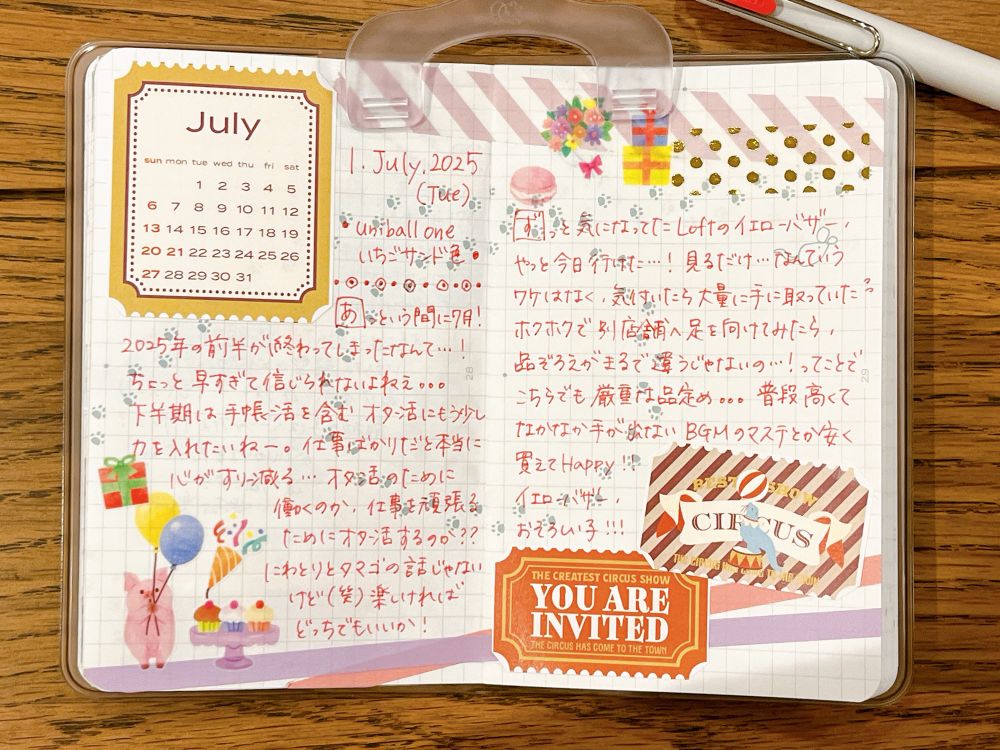 July
sun mon tue wed thu fri sat
1 2 3 4 5
6 7 8 9 10 11 12
13 14 15 16 17 18 19
20 21 22 23 24 25 26
27 28 29 30 31
1. July. 2025
(Tue)
• uniball one
いちごサンド色 •
あっという間に7月!
2025年の前半が終わってしまったなんて…!
ちょっと早すぎて信じられないよねぇ…
下半期は手帳活を含むオタ活にもう少し
力を入れたいねー。仕事ばかりだと本当に
心がすり減る… オタ活のために
働くのか、仕事を頑張る
ためにオタ活するのか??
にわとりとタマゴの話じゃない
けど(笑)楽しければ
どっちでもいいか!
28
ずっと気になってた Loftのイエローバザー、
やっと今日行けた…! 見るだけ…なんていう
ワケはなく、気付いたら大量に手に取っていたっっ
ホクホクで別店舗へ足を向けてみたら、
品ぞろえがまるで違うじゃないの…! ってことで
こちらでも厳重な品定め… 普段高くて
なかなか手が出ない BGMのマステとか安く
買えてHappy!!
イエローバザー、
おそろしい子!!!
29
BEST SHOW
CIRCUS
THE CIRCUS HAS COME TO THE TOWN
THE CREATEST CIRCUS SHOW
YOU ARE
INVITED
THE CIRCUS HAS COME TO THE TOWN